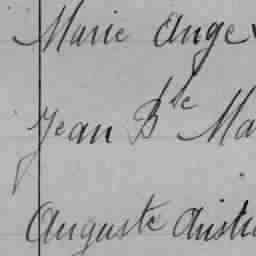 Marie Ange
Jean Bte Ma
Auguste Aristi